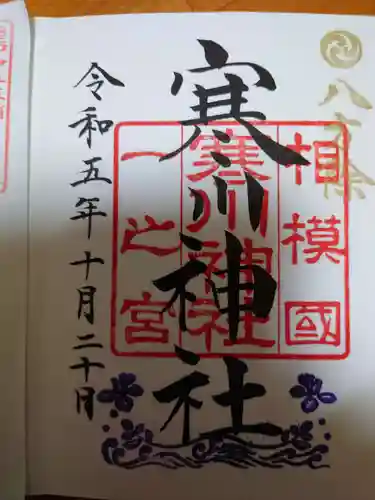 八方除
相模國
寒川神社
一之宮
寒川神社
令和五年十月二十日